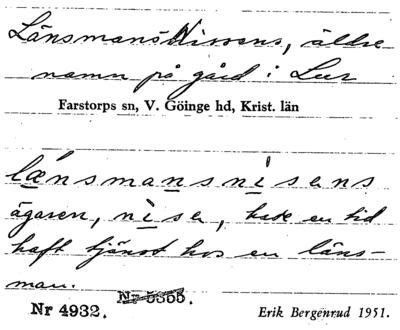 Länsmans Nissens, äldre
namn på gård i Lur
Farstorps sn, V. Göinge hd, Krist. län
lǽnsmansnìsens
ägaren, nìsen, hade en tid
haft tjänst hos en läns-
man.
Nr 5355.
Nr 4932.
Erik Bergenrud 1951.